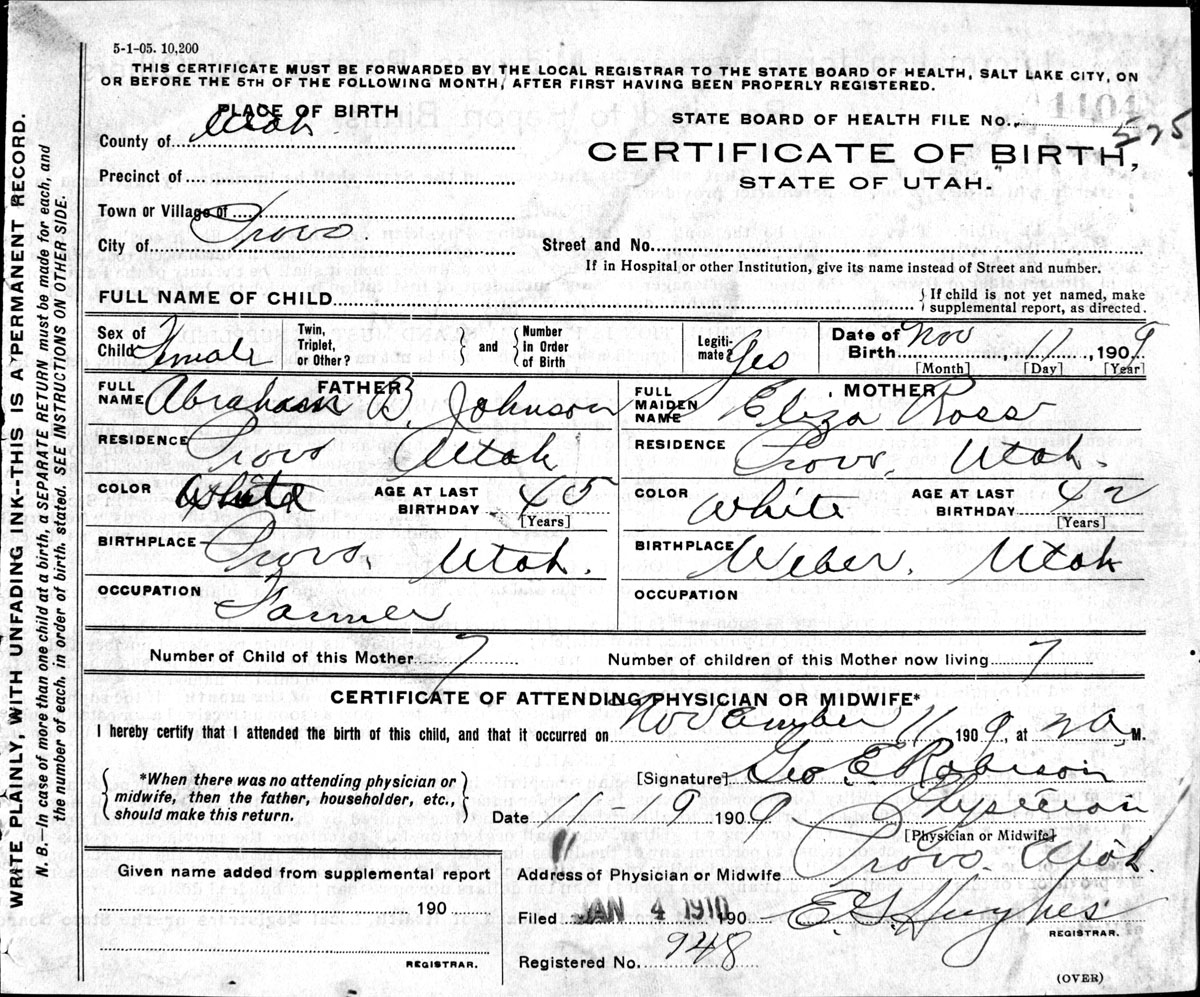 5-1-05. 10,200
THIS CERTIFICATE MUST BE FORWARDED BY THE LOCAL REGISTRAR TO THE STATE BOARD OF HEALTH, SALT LAKE CITY, ON
OR BEFORE THE 5TH OF THE FOLLOWING MONTH, AFTER FIRST HAVING BEEN PROPERLY REGISTERED.
WRITE PLAINLY, WITH UNFADING INK--THIS IS A PERMANENT RECORD.
N. B.--In case of more than one child at a birth, a SEPARATE RETURN must be made for each, and
the number of each, in order of birth, stated. SEE INSTRUCTIONS ON OTHER SIDE.
PLACE OF BIRTH
County of Utah
Precinct of
Town or Village of
City of Provo.
STATE BOARD OF HEALTH FILE No. 575
CERTIFICATE OF BIRTH,
STATE OF UTAH.
Street and No.
If in Hospital or other Institution, give its name instead of Street and number.
FULL NAME OF CHILD
} If child is not yet named, make
supplemental report, as directed.
Sex of Child Female
Twin, Triplet, or Other? { and } Number in Order of Birth
Legiti- mate? Yes
Date of Birth Nov 11, 1909
[Month] [Day] [Year]
FATHER
FULL NAME Abraham B. Johnson
RESIDENCE Provo Utah
COLOR White AGE AT LAST BIRTHDAY 45 [Years]
BIRTHPLACE Provo, Utah.
OCCUPATION Farmer
MOTHER
FULL MAIDEN NAME Eliza Ross
RESIDENCE Provo, Utah.
COLOR White AGE AT LAST BIRTHDAY 42 [Years]
BIRTHPLACE Weber, Utah
OCCUPATION
Number of Child of this Mother 7 Number of children of this Mother now living 7
CERTIFICATE OF ATTENDING PHYSICIAN OR MIDWIFE*
I hereby certify that I attended the birth of this child, and that it occurred on November 11 1909, at 2 a M.
{ *When there was no attending physician or midwife, then the father, householder, etc., should make this return. }
[Signature] Geo. E. Robison
Date 1909 Physician
[Physician or Midwife]
Address of Physician or Midwife Provo Utah.
Given name added from supplemental report
190
REGISTRAR.
Filed JAN 4 1910 190 E. G. Hughes
REGISTRAR.
Registered No. 948
(OVER)